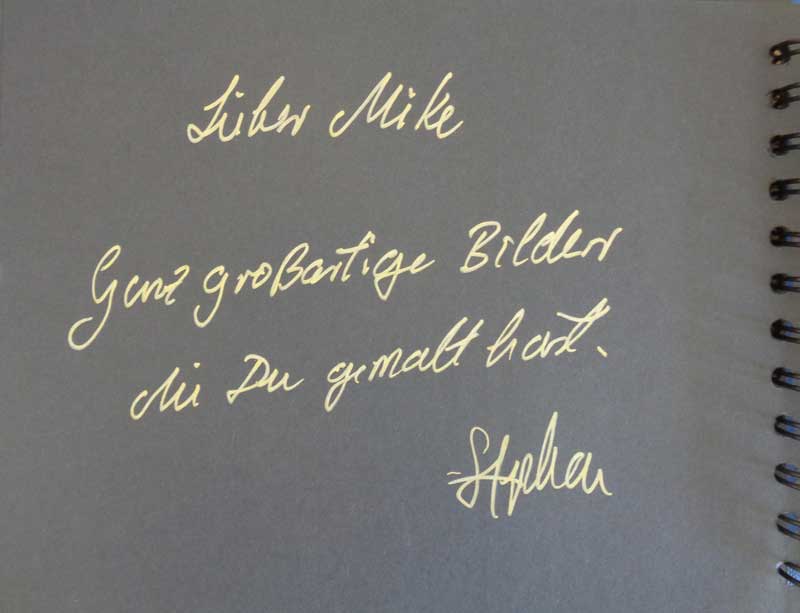 Lieber Mike
Ganz großartige Bilder
die Du gemalt hast.
Stephan